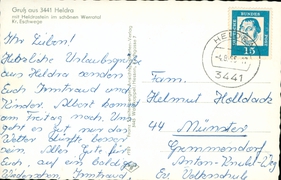 Gruß aus 3441 Heldra
mit Heldrastein im schönen Werratal
Kr. Eschwege
Ihr Lieben!
Herzliche Urlaubsgrüße
aus Heldra senden
Euch Irmtraud und
Kinder. Albert kommt
am Freitag nach. Uns
geht es gut nur das
Wetter dürfte besser
sein. Alles Gute für
Euch, auf ein baldiges
Wiedersehen Irmtraud
DEUTSCHE BUNDESPOST
15
3441
Fam.
Helmut Holldack
44 Münster
Gremmendorf
Anton-Knubel-Weg
Ev. Volksschule